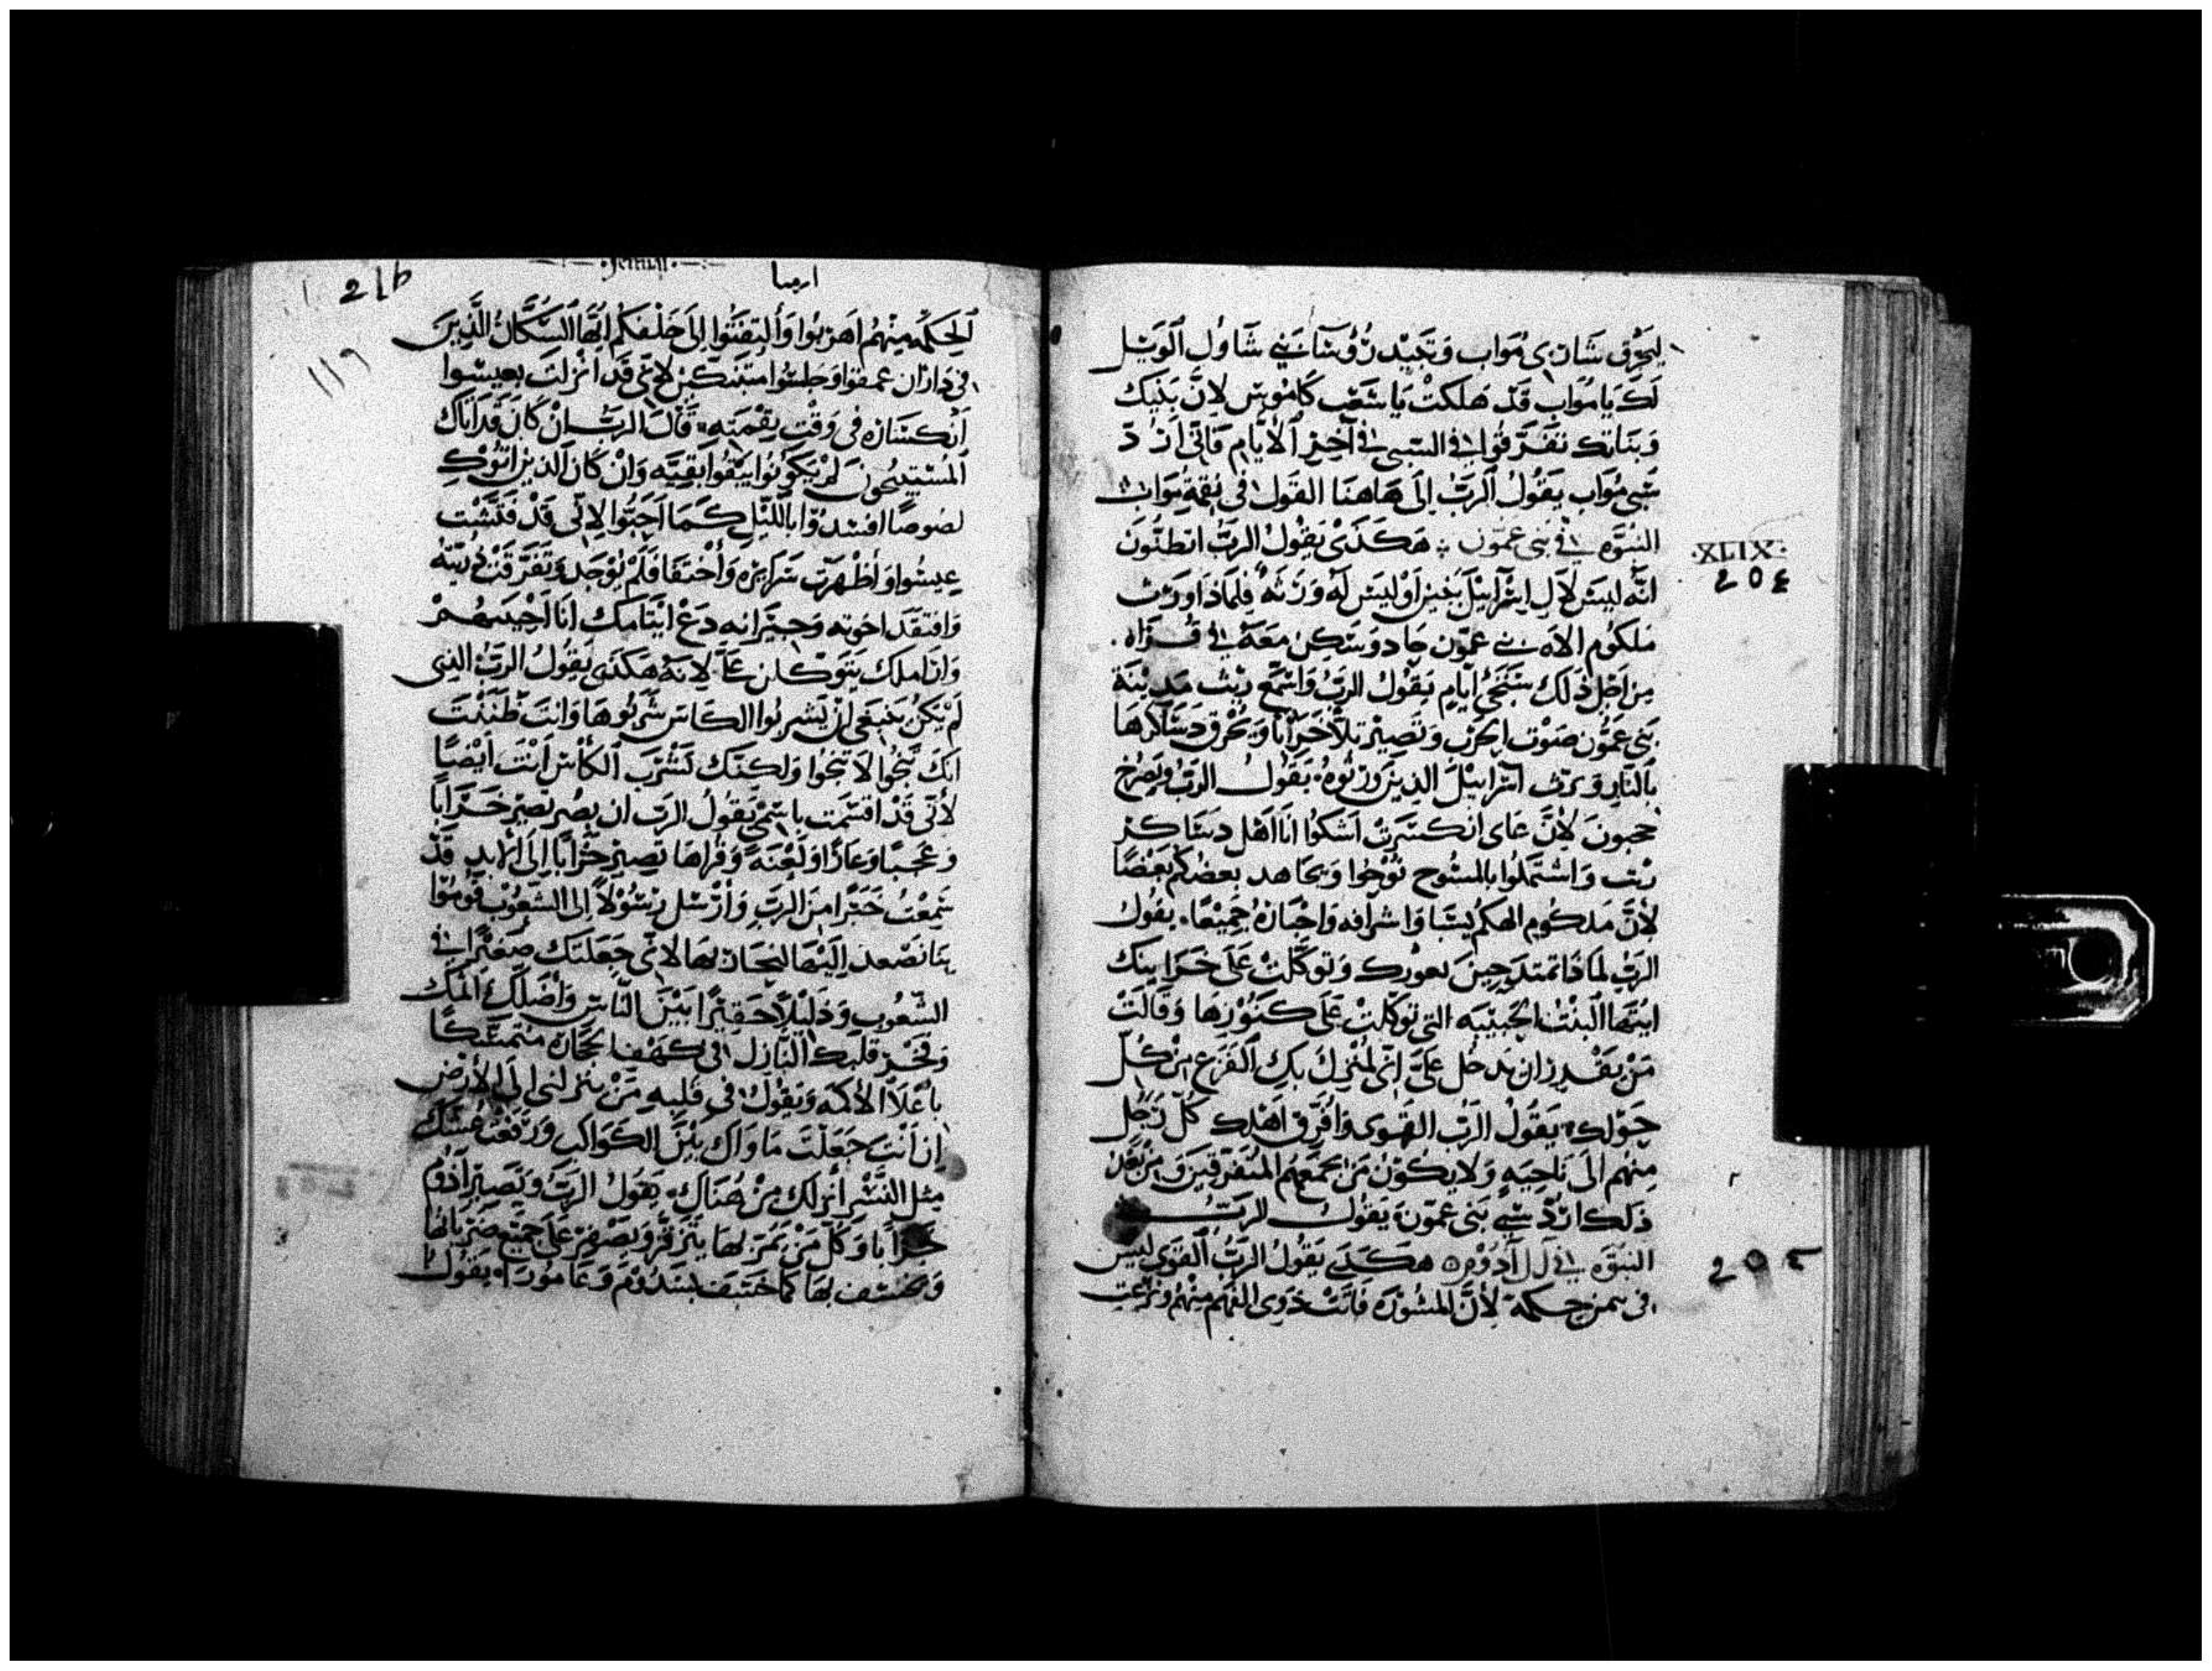 ليحرق شاري مواب وتجيد رووسا بني شاول الويل
لك يا مواب قد هلكت يا شعب كاموس لان بنيك
وبناتك تفرقوا في السبي في آخر الايام فاني ارد
سبي مواب يقول الرب الى هاهنا القول في نقمة مواب
النبوه في بني عمون هكذى يقول الرب اتظنون
انه ليس لال اسرآييل بنين او ليس له ورثه فلماذا ورث
ملكوم الاه بني عمون جاد وسكن معه في قراه
من اجل ذلك ستجي ايام يقول الرب واسمع ربث مدينة
بني عمون صوت الحرب وتصير تلا خرابا وتحرق دساكرها
بالنار ويرث اسراييل الذين ورثوه يقول الرب ويصرخ
حجبون لان عاى انكسرت اشكوا انا اهل دساكر
ربت واشتملوا بالمسوح نوحوا ويجاهد بعضكم بعضا
لان ملكوم الهكم يسبا واشرافه واحباره جميعا يقول
الرب لماذا تمتدحين بغورك وتوكلت على خزاينك
ايتها البنت الحبيبه التي توكلت على كنوزها وقالت
من يقدر ان يدخل علي اني لمنزل بك الفزع من كل
حولك يقول الرب القوى وافرق اهلك كل رجل
منهم الى ناحيه ولا يكون من يجمعهم المتفرقين ومن بعد
ذلك ارد سبي بني عمون يقول الرب
النبوه في ال آدوم هكذى يقول الرب القوى ليس
في يمن حكمة لان المشوره فاتت ذوى الفهم منهم ونزعت
·XLIX·
204
205
Jeremi
ارميا
216
119
الحكمه منهم اهربوا والتفتوا الى خلفكم ايها السكان الذين
في داران عمقوا وجلسوا متنكس لاني قد انزلت بعيسوا
انكساره في وقت نقمته قال الرب ان كان قد اتاك
المستبيحون لم يكونوا يبقوا بقيه وان كان الذين اتوك
لصوصا افسدوا بالليل كما احبوا لاني قد فتشت
عيسوا واظهرت سرايره واختفا فلم يوجد وتفرقت ذريته
وافتقد اخوته وجيرانه دع ايتامك انا احييهم
واراملك يتوكلن علي لانه هكذى يقول الرب الذى
لم يكن ينبغي ان يشربوا الكاس شربوها وانت ظننت
انك تنجوا لا تنجوا ولكنك تشرب الكاس انت ايضا
لاني قد اقسمت باسمي يقول الرب ان بصر تصير خرابا
وعجبا وعارا ولعنه وقراها تصير خرابا الى الابد قد
سمعت خبرا من الرب وارسل رسولا الى الشعوب قوموا
بنا نصعد اليها لنحاربها لاني جعلتك صغيرا في
الشعوب وذليلا حقيرا بين الناس واضلك المك
وفخر قلبك النازل في كهف الحجاره متمسكا
باعلا الاكمه ويقول في قلبه من ينزلني الى الارض
ان انت جعلت ماواك بين الكواكب ورفعت عشك
مثل النسر انزلك من هناك يقول الرب وتصير ادوم
خرابا وكل من يمر بها يتزفر ويصفر على جميع ضرباتها
وتخسف بها كما خسف بسدوم وعامورا يقول